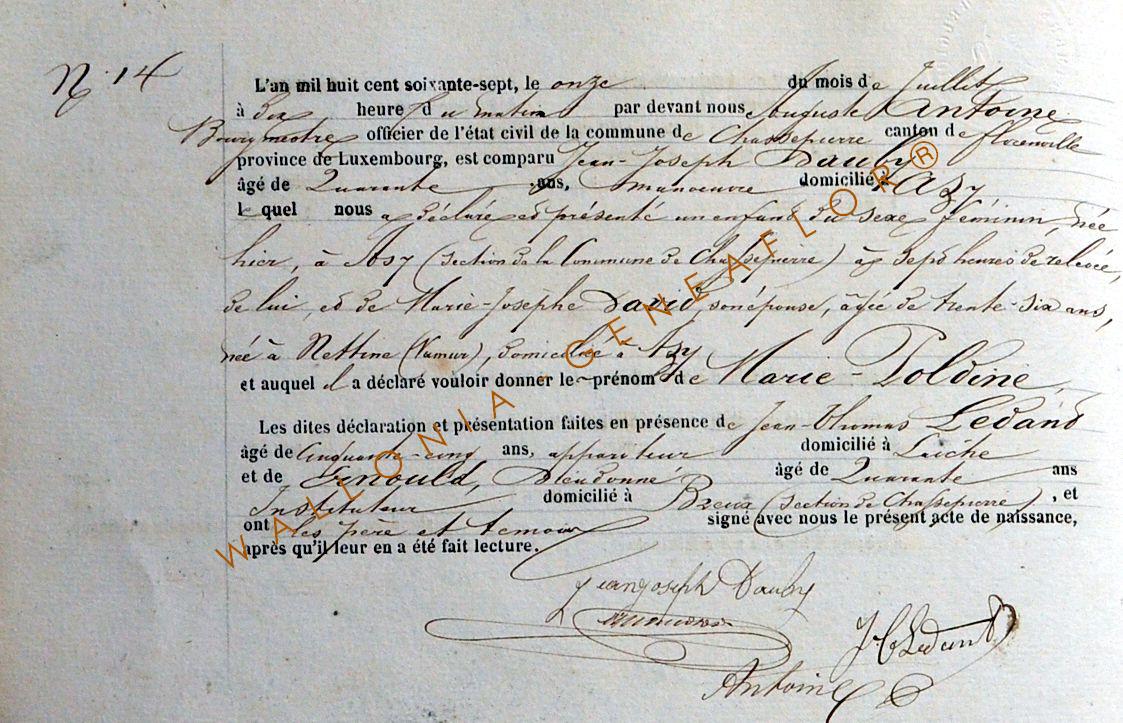 N. 14
L'an mil huit cent soixante-sept, le onze du mois de Juillet
à Dix heure du matin par devant nous Auguste Antoine
Bourgmestre officier de l'état civil de la commune de Chassepierre canton de Florenville
province de Luxembourg, est comparu Jean-Joseph Dauby
âgé de Quarante ans, manoeuvre domicilié à Azy
lequel nous a déclaré et présenté un enfant du sexe féminin, née
hier, à Azy (section de la Commune de Chassepierre) à sept heures de relevée,
de lui, et de Marie-Josephe David, son épouse, âgée de trente-six ans,
née à Nettine (Namur), domiciliée à Azy
et auquel il a déclaré vouloir donner le prénom de Marie-Poldine,
Les dites déclaration et présentation faites en présence de Jean-Thomas Ledand
âgé de Cinquante-cinq ans, appariteur domicilié à Laiche
et de Ernould, Dieudonné âgé de Quarante ans
Instituteur domicilié à Breux (section de Chassepierre), et
ont les père et temoins signé avec nous le présent acte de naissance,
après qu'il leur en a été fait lecture.
Jean joseph Dauby
Antoine
WALLONIA GENEAFLOR®